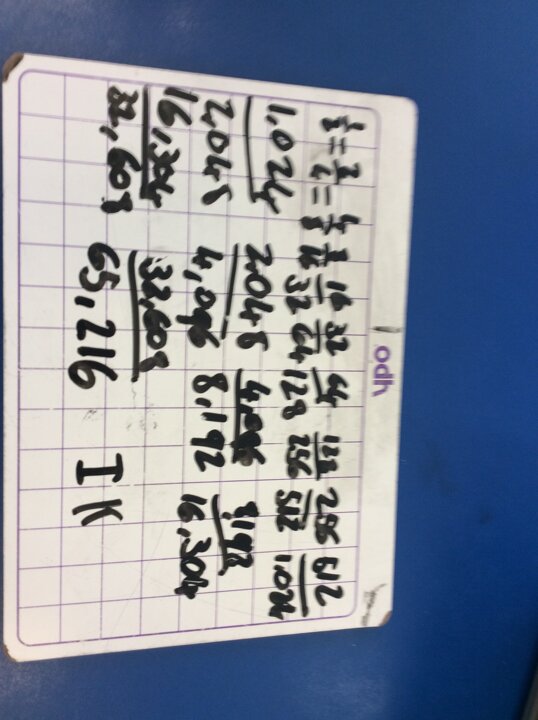 1/2 = 2/4 = 4/8 8/16 16/32 32/64 64/128 128/256 256/512 512/1,024
1,024 2,048 4,096 8,192
2,048 4,096 8,192 16,304
16,304 32,608
32,608 65,216 I K